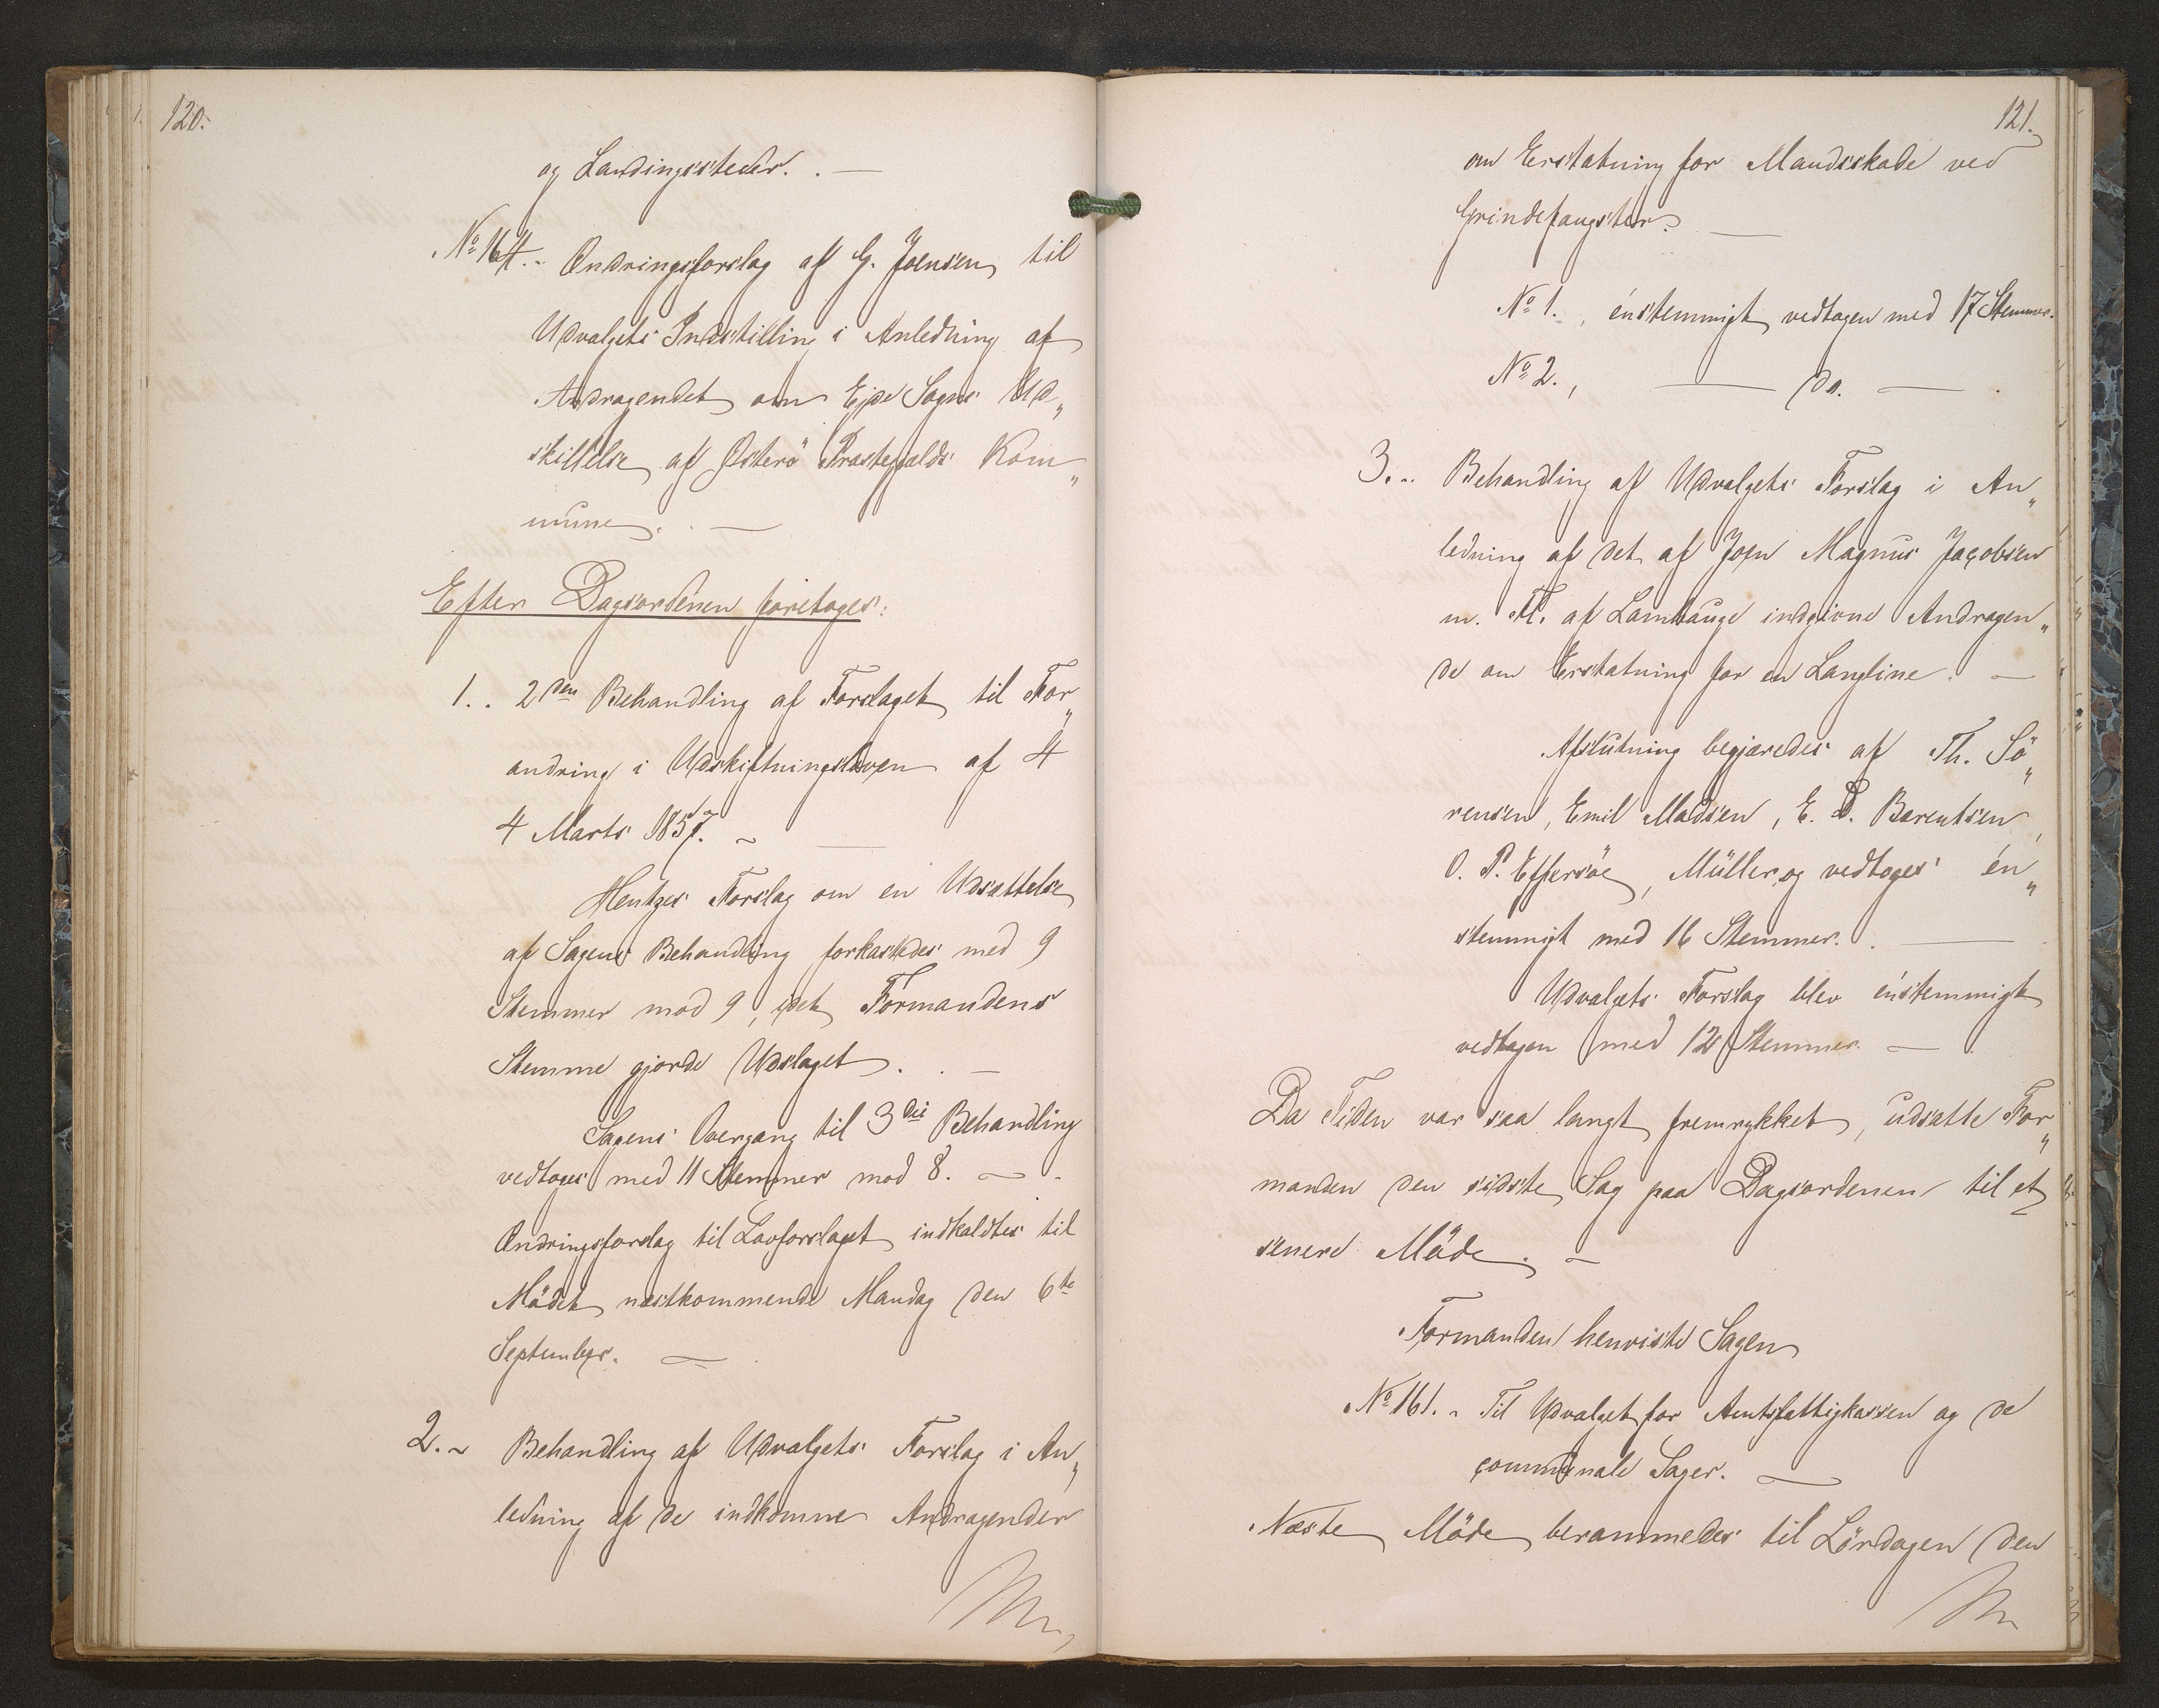 120.
og Landingssteder. . —
No 164. - Ændringsforslag af G. Joensen til
Udvalgets Indstilling i Anledning af
Andragendet om Ejde Sogns Ud„
skillelse af Østerö Præstegjælds Kom„
mune. . —
Efter Dagsordenen foretoges:
1. . 2den Behandling af Forslaget til For„
andring i Udskiftningsloven af 4
4 Marts 1857. ~ —
Hentzes Forslag om en Udsættelse
af Sagens Behandling forkastedes med 9
Stemmer mod 9, idet Formandens
Stemme gjorde Udslaget. . —
Sagens Overgang til 3die Behandling
vedtoges med 11 Stemmer mod 8. — .
Ændringsforslag til Lovforslaget indkaldtes til
Mödet næstkommende Mandag den 6te
September. —
2. ~ Behandling af Udvalgets Forslag i An„
ledning af de indkomne Andragender
121.
om Erstatning for Mandsskade ved
Grindefangster. —
No 1. , énstemmigt vedtagen med 17 Stemmer.
No 2. , — Do. — .
3. . Behandling af Udvalgets Forslag i An„
ledning af det af Joen Magnus Jacobsen
m. Fl. af Lambauge indgivne Andragen„
de om Erstatning for en Langline. —
Afslutning begjæredes af Th. Sö„
rensen, Emil Madsen, E. D. Barentsen,
O. P. Effersöe, Müller og vedtoges én„
stemmigt med 16 Stemmer. . —
Udvalgets Forslag blev énstemmigt
vedtagen med 12 Stemmer. — .
Da Tiden var saa langt fremrykket, udsatte For„
manden den sidste Sag paa Dagsordenen til et
senere Möde. —
Formanden henviste Sagen
No 161. - Til Udvalget for Amtsfattigkassen og de
communale Sager. —
Næste Möde berammedes til Lördagen den